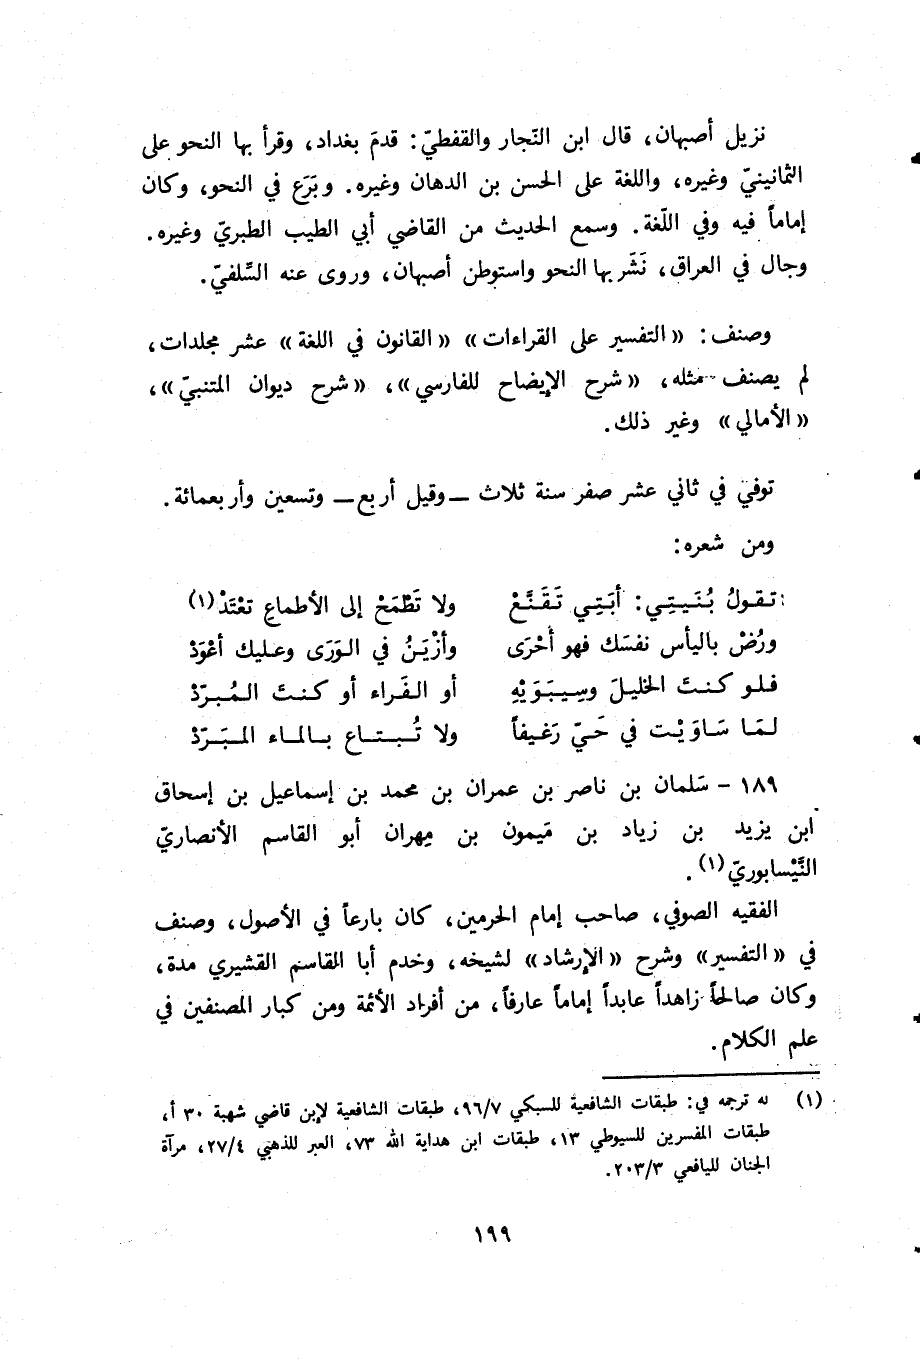 نزيل أصبهان، قال ابن النّجار والقفطيّ: قدمَ بغداد، وقرأ بها النحو على
الثمانينيّ وغيره، واللغة على الحسن بن الدهان وغيره. وبَرَع في النحو، وكان
إماماً فيه وفي اللّغة. وسمع الحديث من القاضي أبي الطيب الطبريّ وغيره.
وجال في العراق، نَشَر بها النحو واستوطن أصبهان، وروى عنه السِّلفيّ.
وصنف: «التفسير على القراءات» «القانون في اللغة» عشر مجلدات،
لم يصنف مثله، «شرح الإيضاح للفارسي»، «شرح ديوان المتنبيّ»،
«الأمالي» وغير ذلك.
توفي في ثاني عشر صفر سنة ثلاث ــ وقيل أربع ــ وتسعين وأربعمائة.
ومن شعره:
تقولُ بُنَيتِي: أبَتِي تَقَنَّعْ ولا تَطْمَحْ إلى الأطماعِ تعْتَدْ(١)
ورُضْ باليأس نفسَك فهو أحْرَى وأزْيَنُ في الوَرَى وعليك أعْوَدْ
فلو كنتَ الخليلَ وسِيبَوَيْهِ أو الفَراء أو كنتَ المُبرَدْ
لمَا سَاوَيْت في حَيّ رَغيفاً ولا تُبتاع بالماء المبَرَدْ
١٨٩ - سَلمان بن ناصر بن عمران بن محمد بن إسماعيل بن إسحاق
ابن يزيد بن زياد بن مَيمون بن مِهران أبو القاسم الأنصاريّ
النَّيْسابوريّ(١).
الفقيه الصوفي، صاحب إمام الحرمين، كان بارعاً في الأصول، وصنف
في «التفسير» وشرح «الإرشاد» لشيخه، وخدم أبا القاسم القشيري مدة،
وكان صالحاً زاهداً عابداً إماماً عارفاً، من أفراد الأئمة ومن كبار المصنفين في
علم الكلام.
(١) له ترجمه في: طبقات الشافعية للسبكي ٩٦/٧، طبقات الشافعية لإبن قاضي شهبة ٣٠ أ،
طبقات المفسرين للسيوطي ١٣، طبقات ابن هداية الله ٧٣، العبر للذهبي ٢٧/٤، مرآة
الجنان لليافعي ٢٠٣/٣.
١٩٩